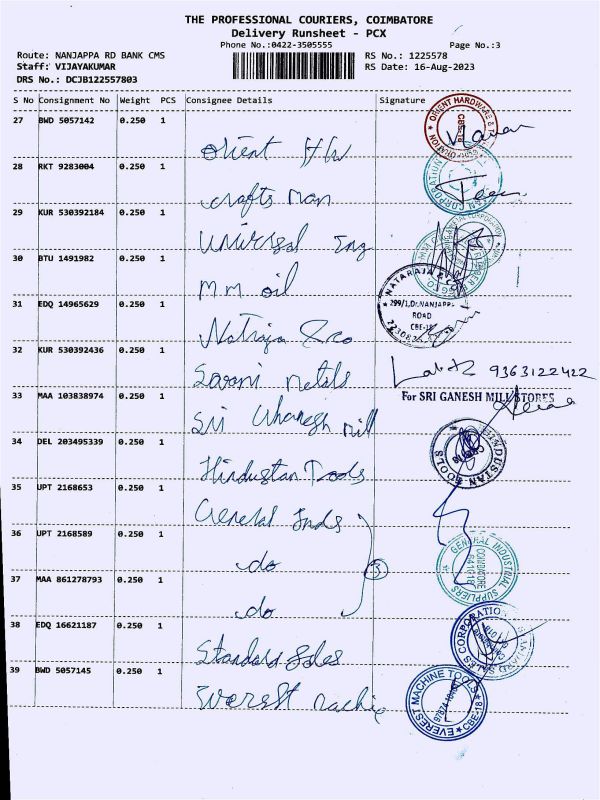 THE PROFESSIONAL COURIERS, COIMBATORE
Delivery Runsheet - PCX
Phone No.:0422-3505555
Page No.:3
Route: NANJAPPA RD BANK CMS
RS No.: 1225578
Staff: VIJAYAKUMAR
RS Date: 16-Aug-2023
DRS No.: DCJB122557803
S No Consignment No Weight PCS Consignee Details Signature
27 BWD 5057142 0.250 1
orient H/W
ORIENT HARDWARE &
28 RKT 9283004 0.250 1
crafts man
29 KUR 530392184 0.250 1
Universal Eng
30 BTU 1491982 0.250 1
mm oil
NATARAJA & CO
299/1, Dr. NANJAPPA
ROAD
CBE-18
31 EDQ 14965629 0.250 1
Natraja & co
32 KUR 530392436 0.250 1
Savani metals
9363122422
33 MAA 103838974 0.250 1
For SRI GANESH MILL STORES
Sri Ghanesh mill
34 DEL 203495339 0.250 1
Hindustan Tools
HINDUSTAN TOOLS
35 UPT 2168653 0.250 1
General Inds
36 UPT 2168589 0.250 1
do
GENERAL INDUSTRIAL SUPPLIERS
COIMBATORE
641018
3
37 MAA 861278793 0.250 1
do
38 EDQ 16621187 0.250 1
Standard Sales
STANDARD SALES CORPORATION
39 BWD 5057145 0.250 1
Everest machine
EVEREST MACHINE TOOLS
CBE-18